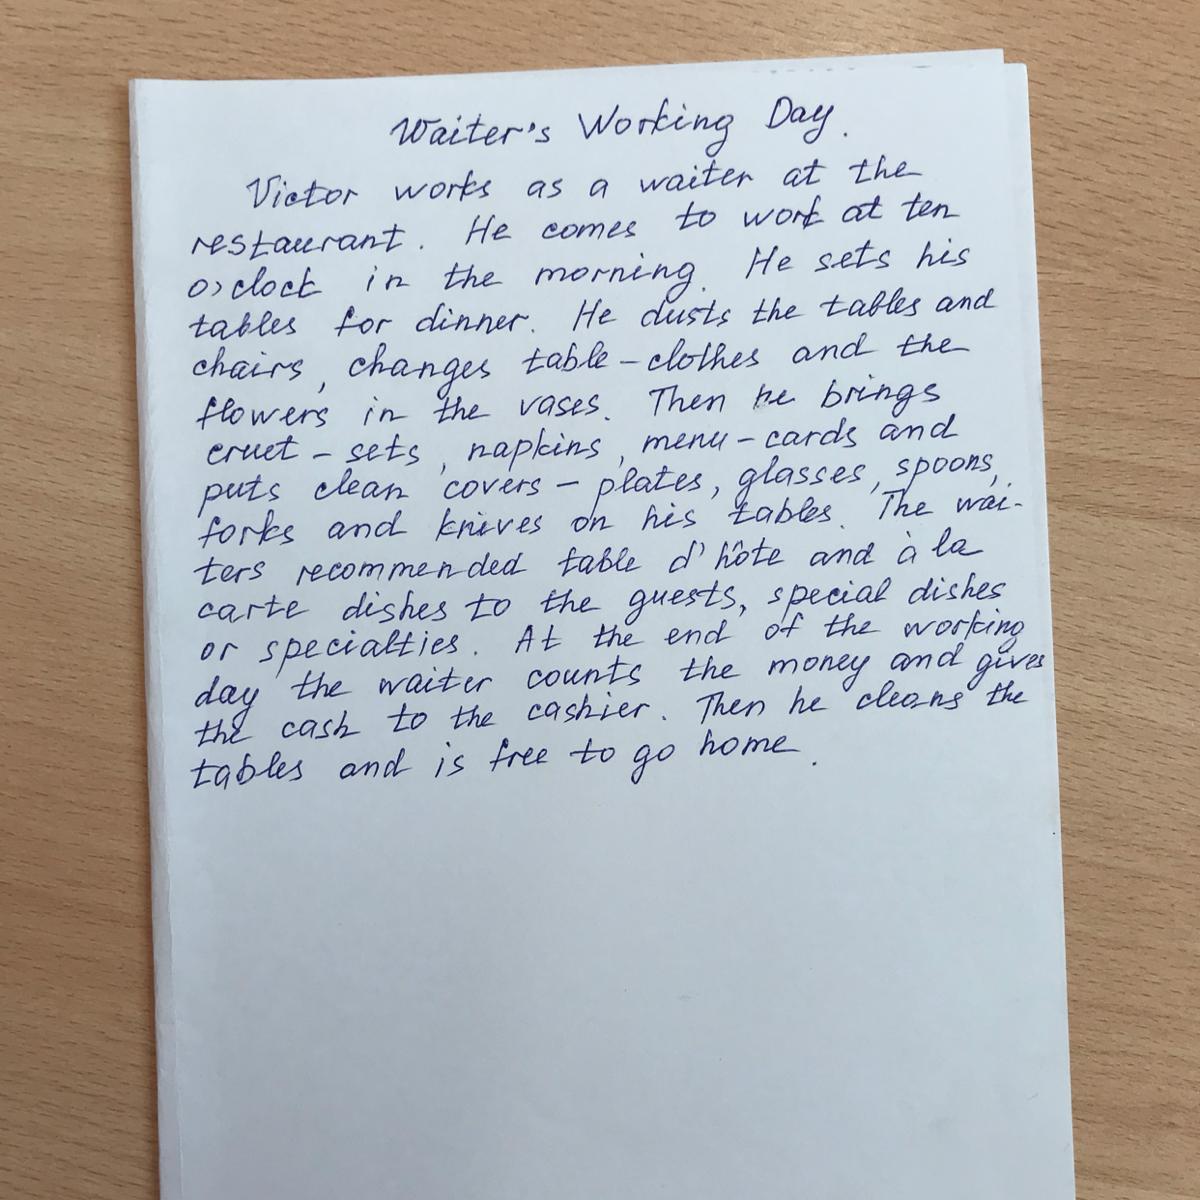 Waiter's Working Day.
Victor works as a waiter at the
restaurant. He comes to work at ten
o'clock in the morning. He sets his
tables for dinner. He dusts the tables and
chairs, changes table-clothes and the
flowers in the vases. Then he brings
cruet-sets, napkins, menu-cards and
puts clean covers - plates, glasses, spoons,
forks and knives on his tables. The wai-
ters recommended table d'hôte and à la
carte dishes to the guests, special dishes
or specialties. At the end of the working
day the waiter counts the money and gives
the cash to the cashier. Then he cleans the
tables and is free to go home.